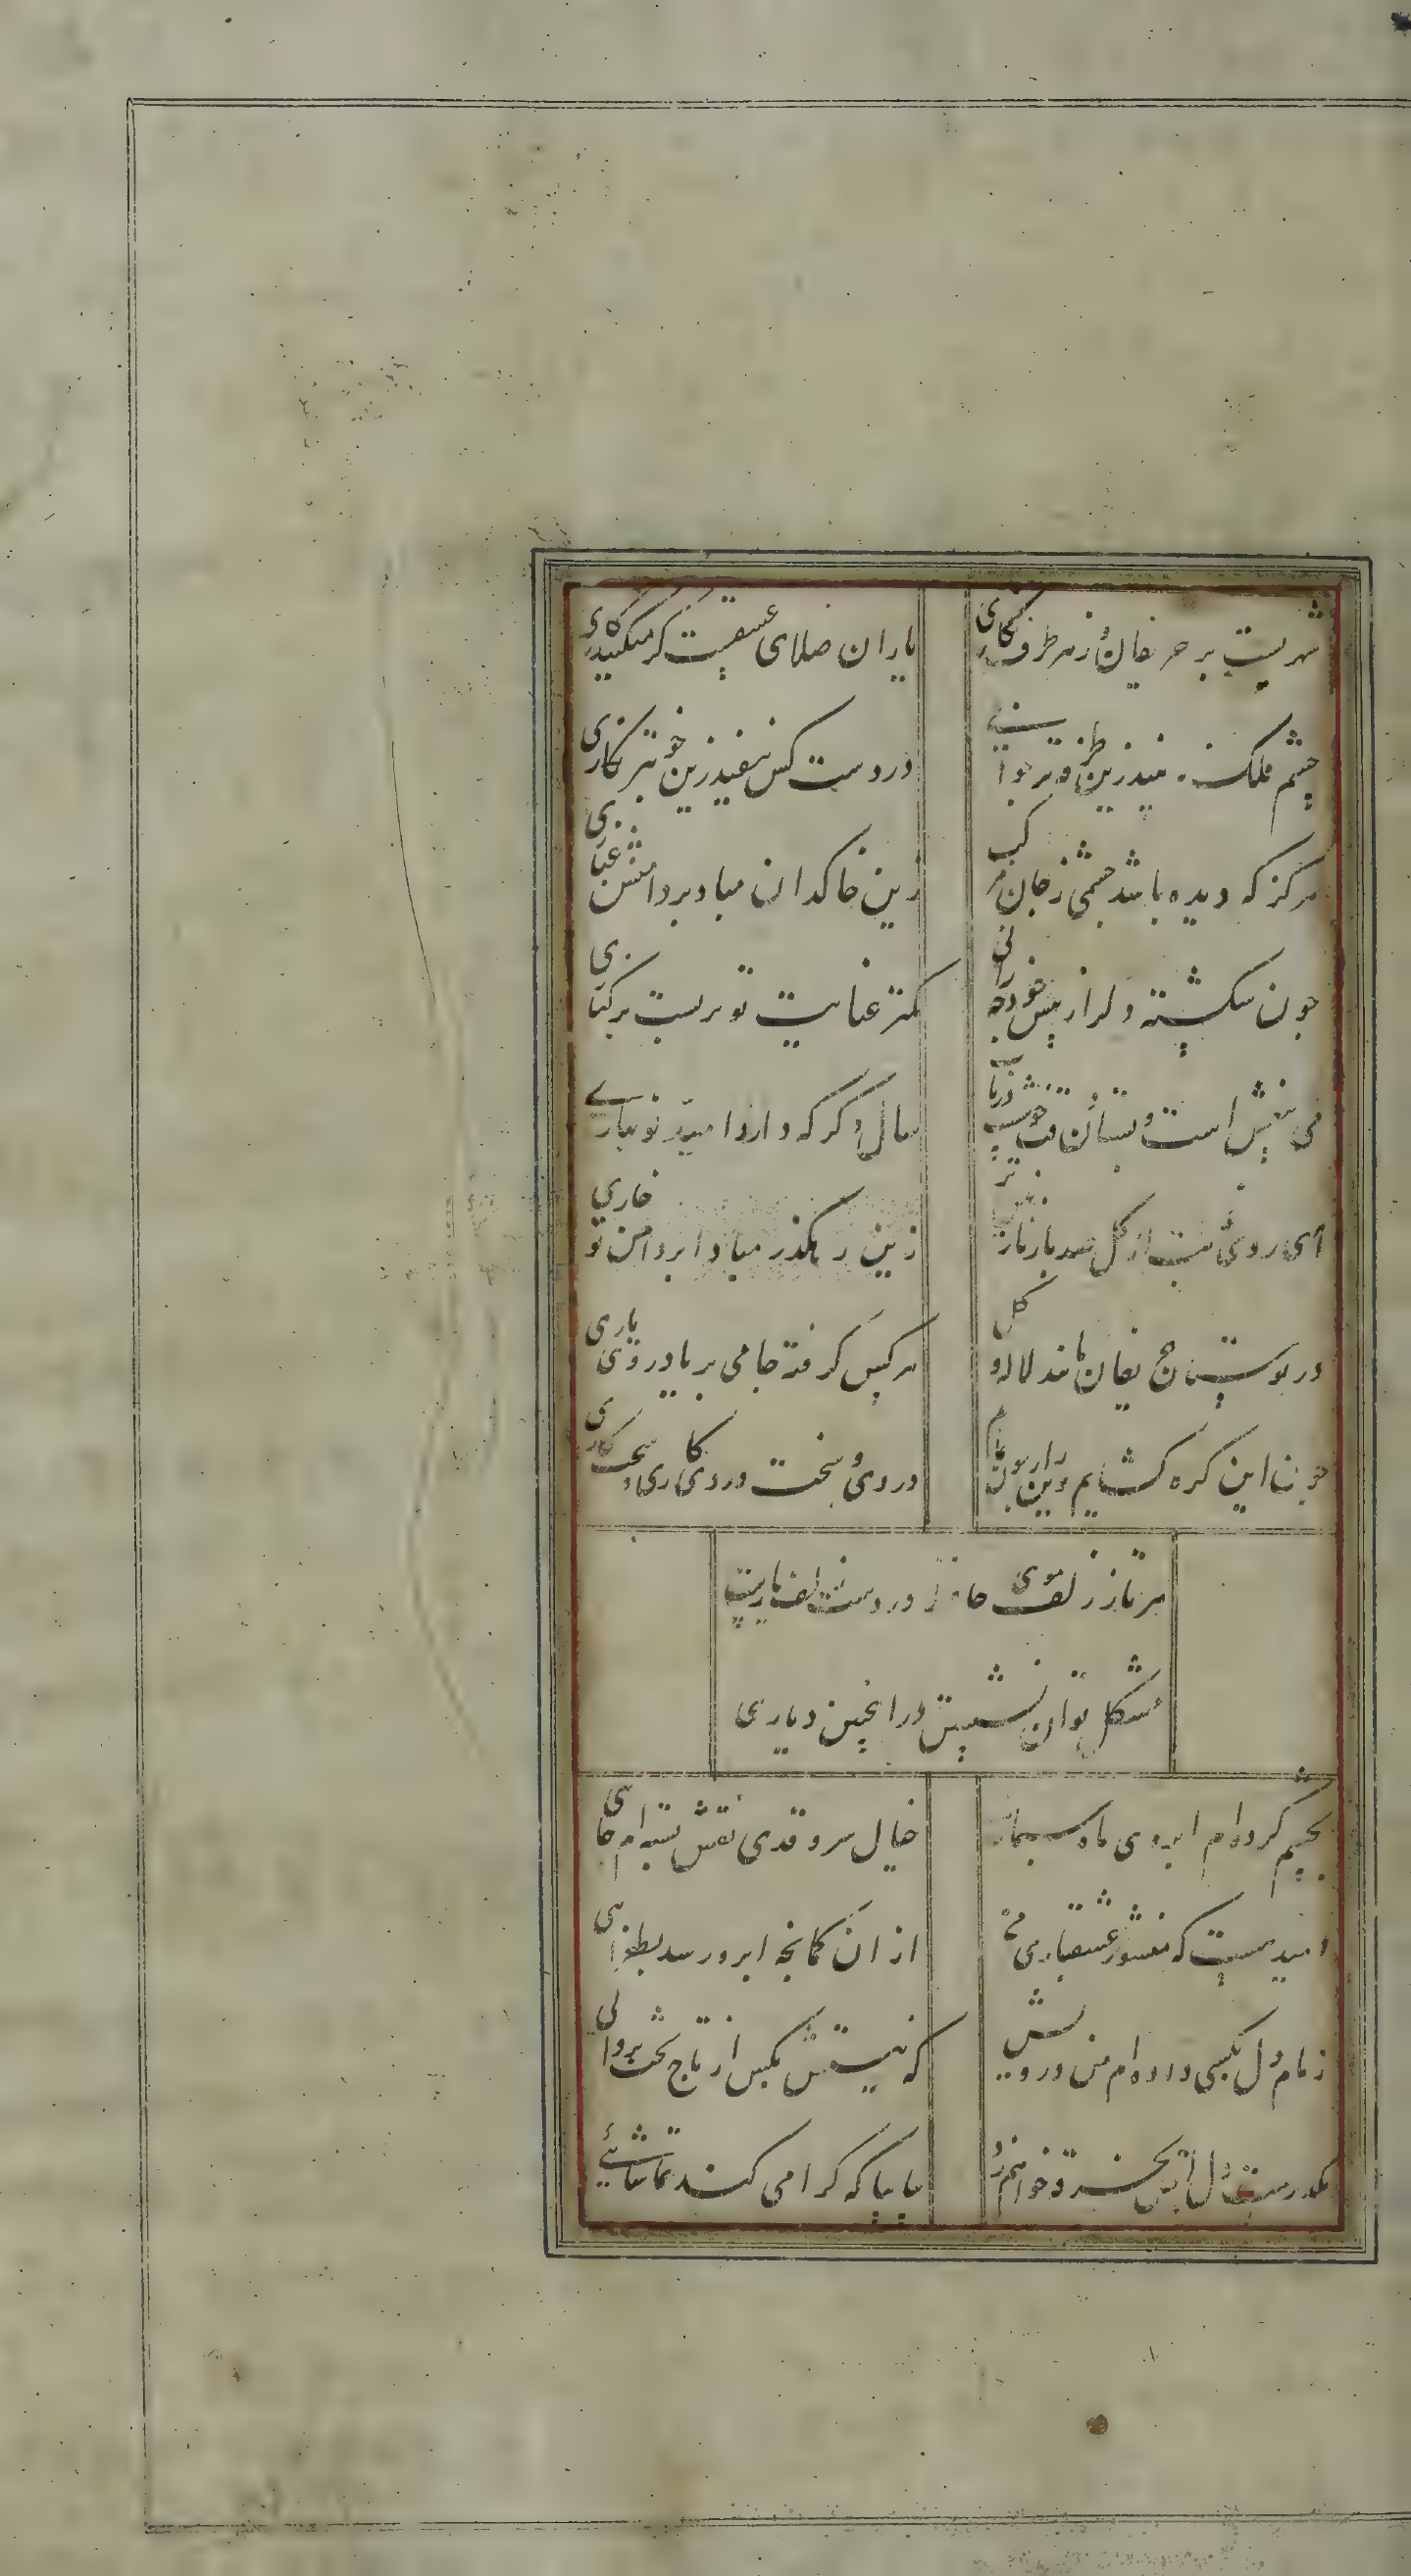 شهریست پر حریفان و ز هر طرف نگاری
یاران صلای عشقست گر میکنید کاری
چشم فلک نبیند زین طرفه تر جوانی
در دست کس نیفتد زین خوبتر نگاری
هرگز که دیده باشد جسمی ز جان مرکب
زین خاکدان مبادا بر دامنش غباری
چون من شکسته دلرا از پیش خود چه رانی
کمتر عنایت تو بوسیست بر کناری
می بیغش است و بستان وقت خوشست دریاب
سال دگر که دارد امید نوبهاری
ای روی تست از گل صد بار نازنین تر
زین رهگذر مبادا بر دامن تو خاری
در بوستان حریفان مانند لاله و گل
هر کس گرفته جامی بر یاد روی یاری
چون این گره گشایم وین راز چون نمایم
دردی و سخت دردی کاری و سخت کاری
هر تار ز زلف موی حافظ در دست زلف یاریست
مشکل توان نشستن در اینچنین دیاری
بچشم کرده ام ابروی ماه سیمائی
خیال سرو قدی نقش بسته ام جائی
امید هست که منشور عشقبازی من
از آن کمانچه ابرو رسد بطغرائی
زمام دل بکسی داده ام من درویش
که نیستش بکس از تاج و تخت پروائی
مکدرست دل آتش بخرقه خواهم زد
بیا بیا که کرا می کند تماشائی